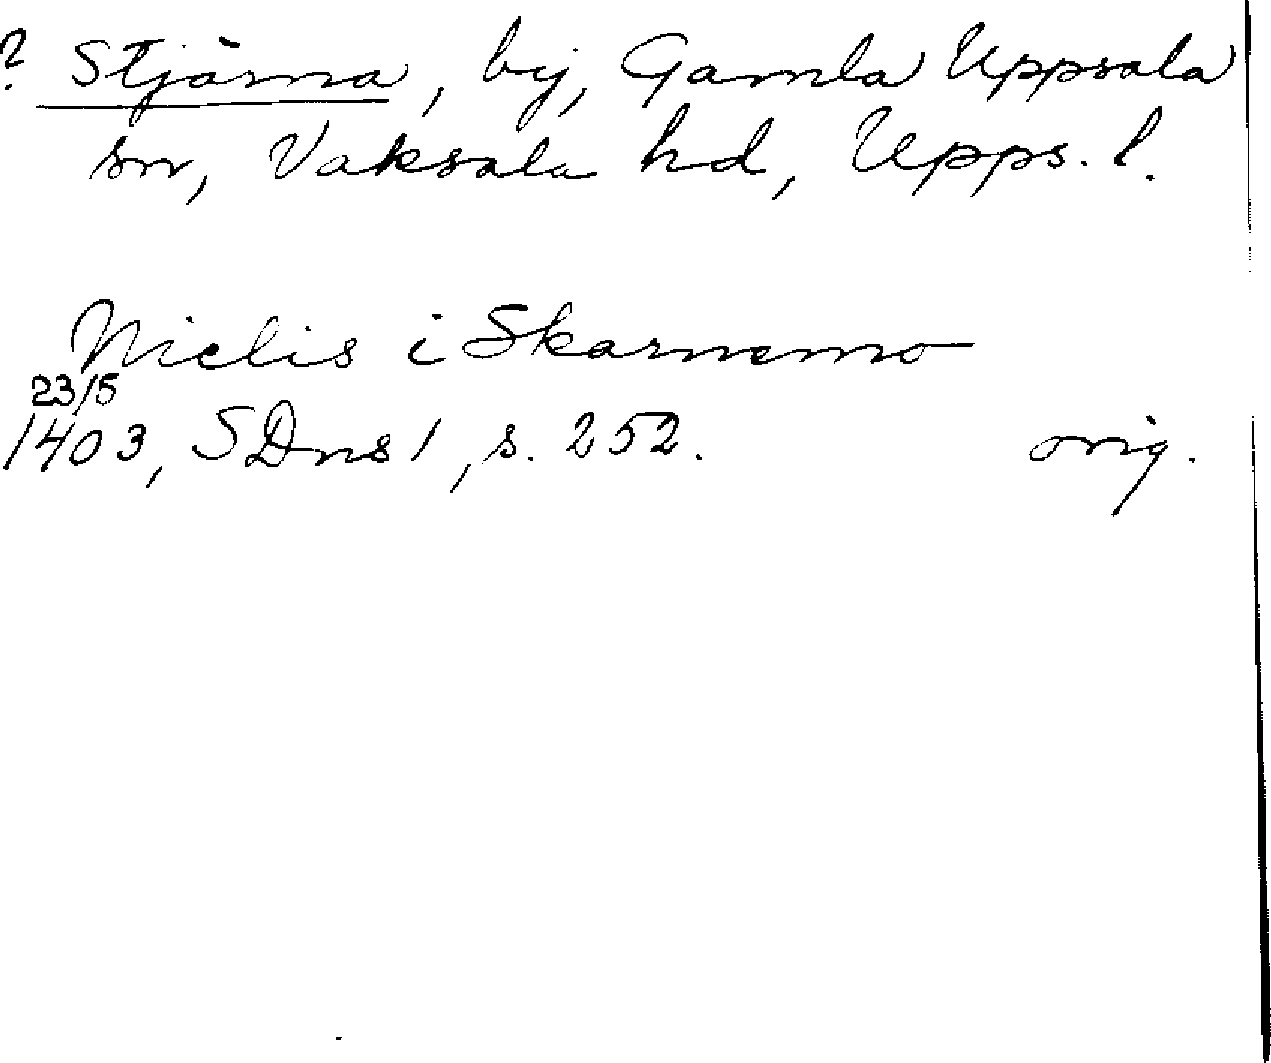 ? Stjärna, by, Gamla Uppsala
sn, Vaksala hd, Upps. l.
Nielis i Skarnemo
23/5
1403, SDns 1, s. 252. orig.